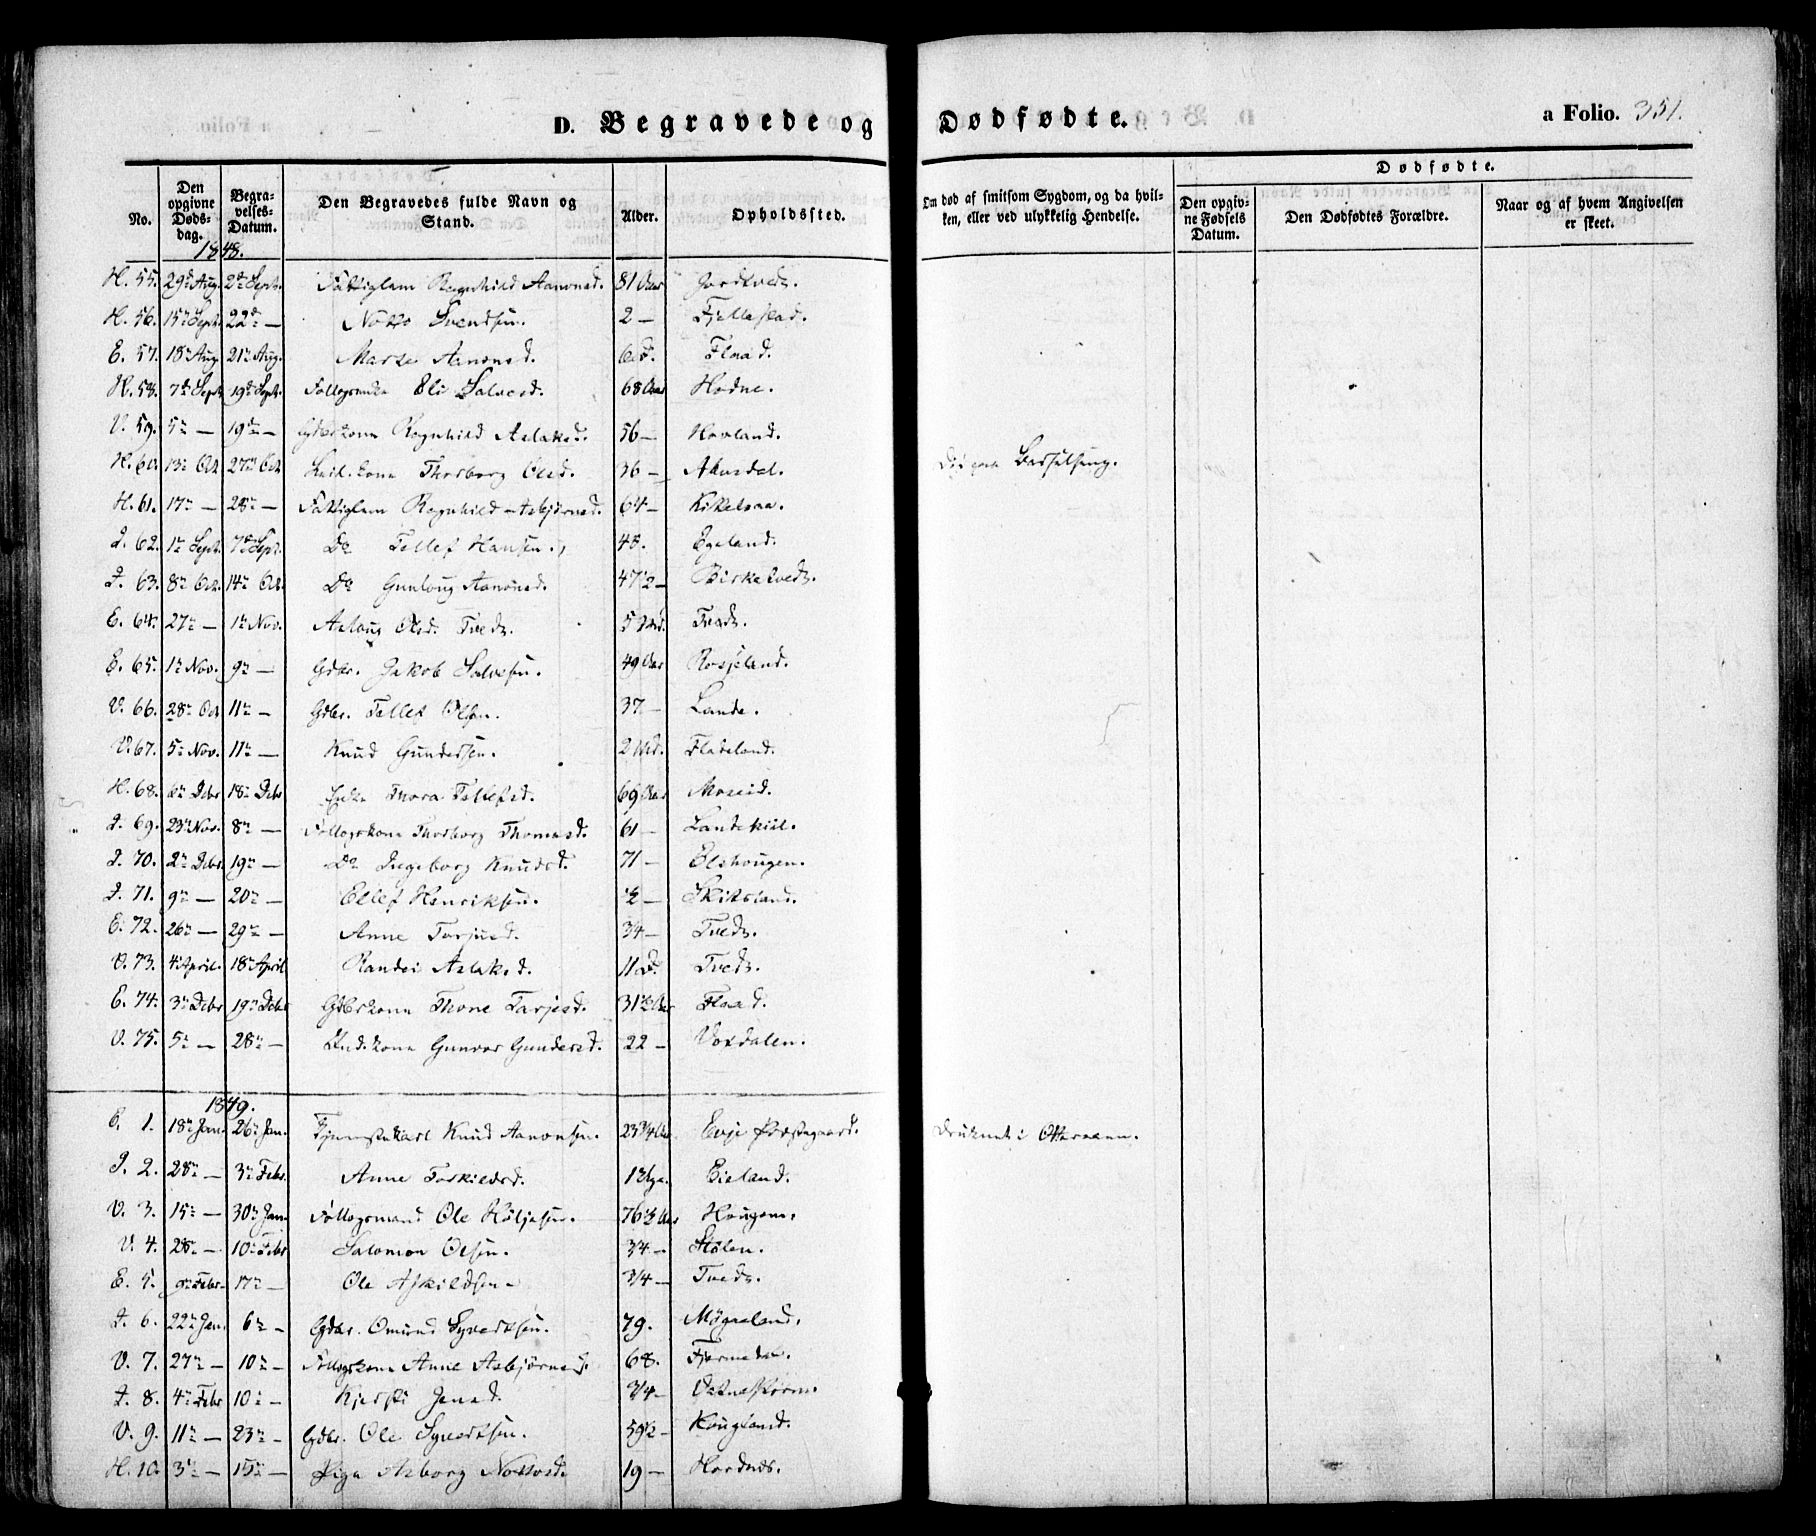 D. Begravede og Dødfødte. a Folio. 351.
No. Den opgivne Døds-dag. Begra-velses-Datum. Den Begravedes fulde Navn og Stand. Alder. Opholdssted. Om død af smitsom Sygdom, og da hvil-ken, eller ved ulykkelig Hendelse. Dødfødte. Den opgiv-ne Fødsels Datum. Den Dødfødtes Forældre. Naar og af hvem Angivelsen er skeet.
1848.
H. 55. 29de Aug. 2de Sept. Fattiglem Ragnhild Aanonsd. 81 Aar
H. 56. 15n Sept. 22de — Notto Svendsen. 2 — Fjellestad.
E. 57. 18n Aug. 21n Aug. Marte Aanonsd. 6 D. Flaad.
H. 58. 7de Sept. 19de Sept. Eli Salvesd. 68 Aar Hodne.
V. 59. 5n — 19de — Gdbrkona Ragnhild Aslaksd. 56 — Hovland.
H. 60. 13n Oct. 27n Oct. Thorborg Olsd. 36 — Barselseng.
H. 61. 17n — 28n — Fattiglem Ragnhild Asbjørnsd. 64 — Kikelsaa.
I. 62. 1n Sept. 7de Sept. Do Tellef Hansen. 48. Egeland.
I. 63. 8n Oct. 14n Oct. Do Gunloug Aanonsd. 47½ — Birketvedt.
E. 64. 27n — 1n Nov. Aslaug Olsd. Tvedt. Tvedt.
E. 65. 1n Nov. 9n — Gdbr. Jakob Salvesen. 49 Aar Rosseland.
V. 66. 28n Oct. 11n — Gdbr. Tellef Olsen. 37 — Lande.
V. 67. 5n Nov. 11n — Knud Gundersen. Flateland.
H. 68. 6n Debr 18n Debr Enke Thora Tellefsd. 69 Aar Moseid.
I. 69. 23n Nov. 8n — Follogskona Thorborg Thomasd. 61 — Landekiil.
I. 70. 2n Debr. 19n — Do Ingeborg Knudsd. 71 — Elshougen.
I. 71. 9n — 20n — Ellef Henriksen. ½ —
E. 72. 26n — 29n — Anne Tarjesd. 3/4 — Tvedt.
V. 73. 4n April. 18n April Randei Aslaksd. 11 D. Tvedt.
E. 74. 3n Debr 19n Debr Gdbrkona Thone Tarjesd. 31½ Aar Flaad.
V. 75. 5n — 28n — Gunvor Gundersd. 22 — Voxdalen.
1849.
E. 1. 18n Jan. 26n Jan. Tjenestekarl Knud Aanonsen. 23 3/4 Aar Evje Præstegaard. Druknet i Otteraaen.
I. 2. 28n — 3n Febr. Anne Torkildsd. 1 Uge. Eieland.
V. 3. 15n — 30n Jan. Follogsmand Ole Høljesen. 76½ Aar Hougen.
V. 4. 28n — 10n Febr Salomon Olsen. 3/4 — Stølen.
E. 5. 9n Febr. 17n — Ole Askildsen — 3/4 — Tvedt.
I. 6. 22n Jan. 6n — Gdbr. Omund Syvertsen. 79. Møgaeland.
V. 7. 27n — 10n — Follogskona Anne Asbjørnsd. 68.
I. 8. 4n Febr 10n — Kjersti Jensd. 3/4 —
V. 9. 11n — 23n — Gdbr. Ole Syvertsen. 59½ — Kougland.
H. 10. 3n — 15n — Pige Asborg Nottosd. 19 — Hordnes.